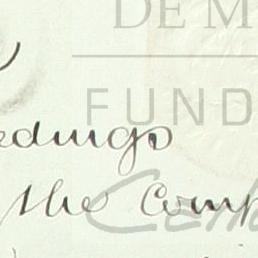 DE M
FUND
edings
the Comp
Cen